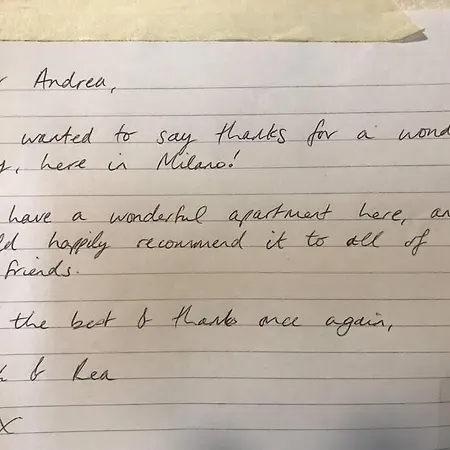 Andrea,
wanted to say thanks for a
here in Milano!
have a wonderful apartment here,
happily recommend it to all of
friends.
the best & thanks once again,
& Rea
X